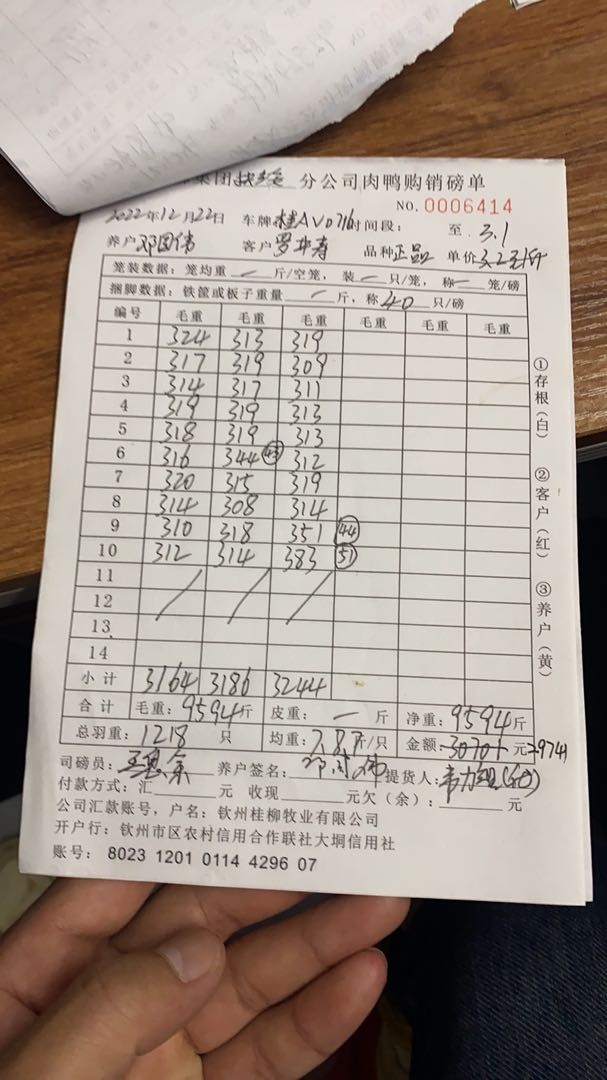 集团 分公司肉鸭购销磅单
NO. 0006414
2022年12月22日 车牌 桂AV0716 时间段: 至 3.1
养户 邓国伟 客户 罗 寿 品种 正品 单价
笼装数据: 笼均重 — 斤/空笼, 装 — 只/笼, 称 — 笼/磅
捆脚数据: 铁筐或板子重量 — 斤, 称 40 只/磅
编号 毛重 毛重 毛重 毛重 毛重 毛重
1 324 313 319
2 317 319 309
3 314 317 311
4 319 319 313
5 318 319 313
6 316 344 43 312
7 320 315 319
8 314 308 314
9 310 318 351 44
10 312 314 383 51
11
12
13
14
小计 3164 3186 3244
合计 毛重: 9594 斤 皮重: — 斤 净重: 9594 斤
总羽重: 1218 只 均重: 7.87 斤/只 金额: 30701 元 29741
司磅员: 养户签名: 邓国伟 提货人:
付款方式: 汇 元 收现 元欠(余): 元
公司汇款账号, 户名: 钦州桂柳牧业有限公司
开户行: 钦州市区农村信用合作联社大垌信用社
账号: 8023 1201 0114 4296 07
①存根(白)
②客户(红)
③养户(黄)